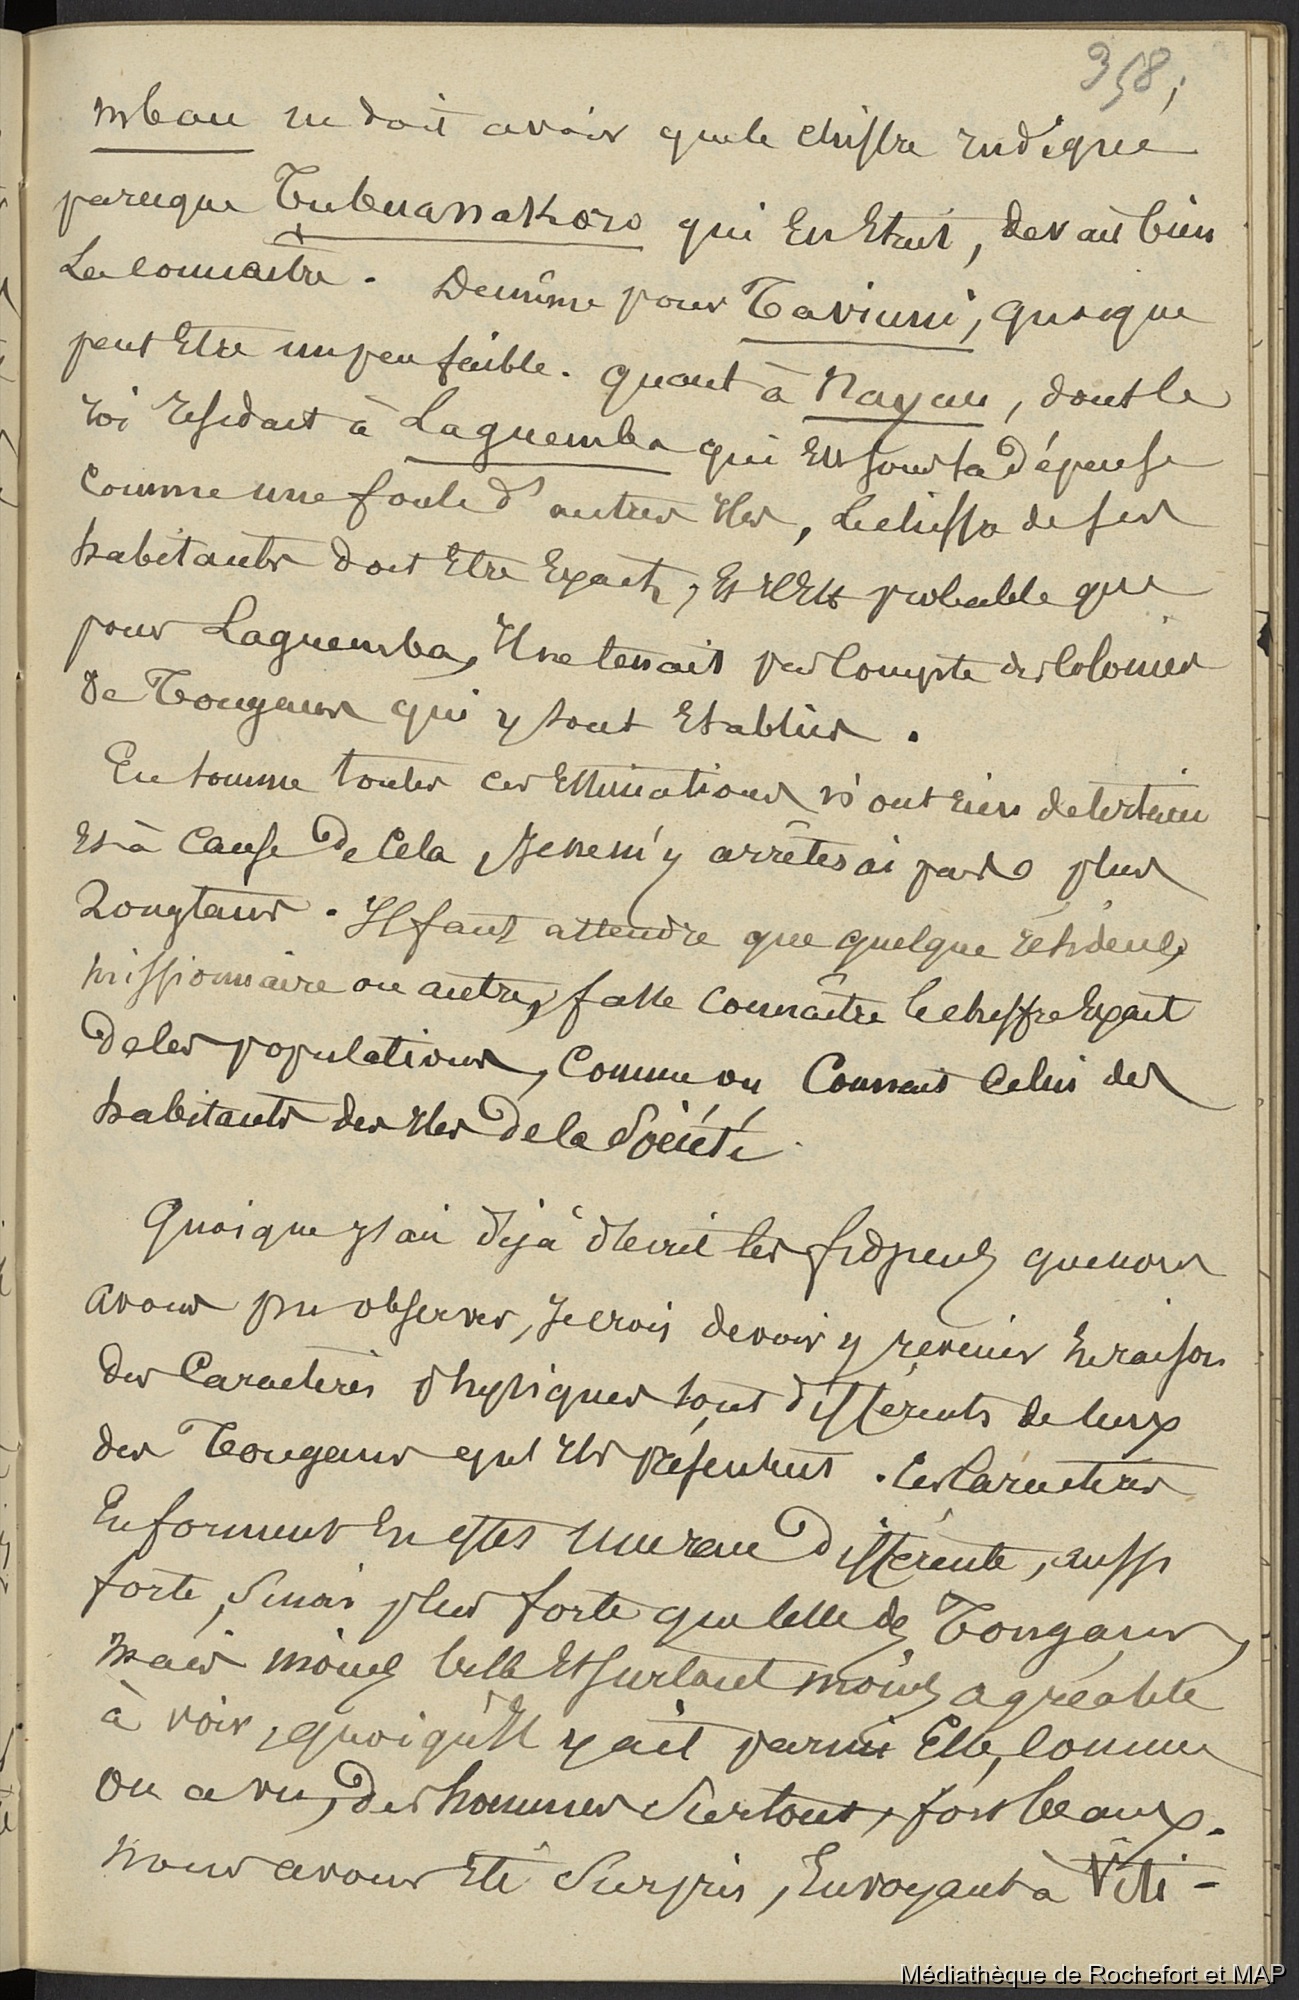 358,
mbau ne doit avoir que le chiffre indiqué
parceque Tubuanakoro qui en était, devait bien
le connaitre. De même pour Taviuni, quoique
peut être un peu faible. quant à Nayau, dont le
roi résidait à Laguemba qui est sous sa dépense
comme une foule d'autres iles, le chiffre de ses
habitants doit être exact, et il est probable que
pour Laguemba, il ne tenait pas compte des colonies
de Tongans qui y sont établies.
En somme toutes ces estimations n'ont rien de certain
et à cause de cela, je ne m'y arrêterai pas plus
Longtems. Il faut attendre que quelque résident,
missionnaire ou autre, fasse connaître le chiffre exact
de les populations, comme on connait celui des
habitants des iles de la Société.
Quoique j'ai déjà décrit les fidjiens que nous
avons pu observer, je crois devoir y revenir en raison
des caractères physiques tout différents de ceux
des Tongans qu'ils présentent. Ces caractères
en forment en effet une race différente, aussi
forte, sinon plus forte que celle des Tongans,
mais moins belle et surtout moins agréable
à voir, quoiqu'il y ait parmi elle, comme
on a vu, des hommes surtout, fort beaux.
nous avons été surpris, en voyant à Viti-
Médiathèque de Rochefort et MAP